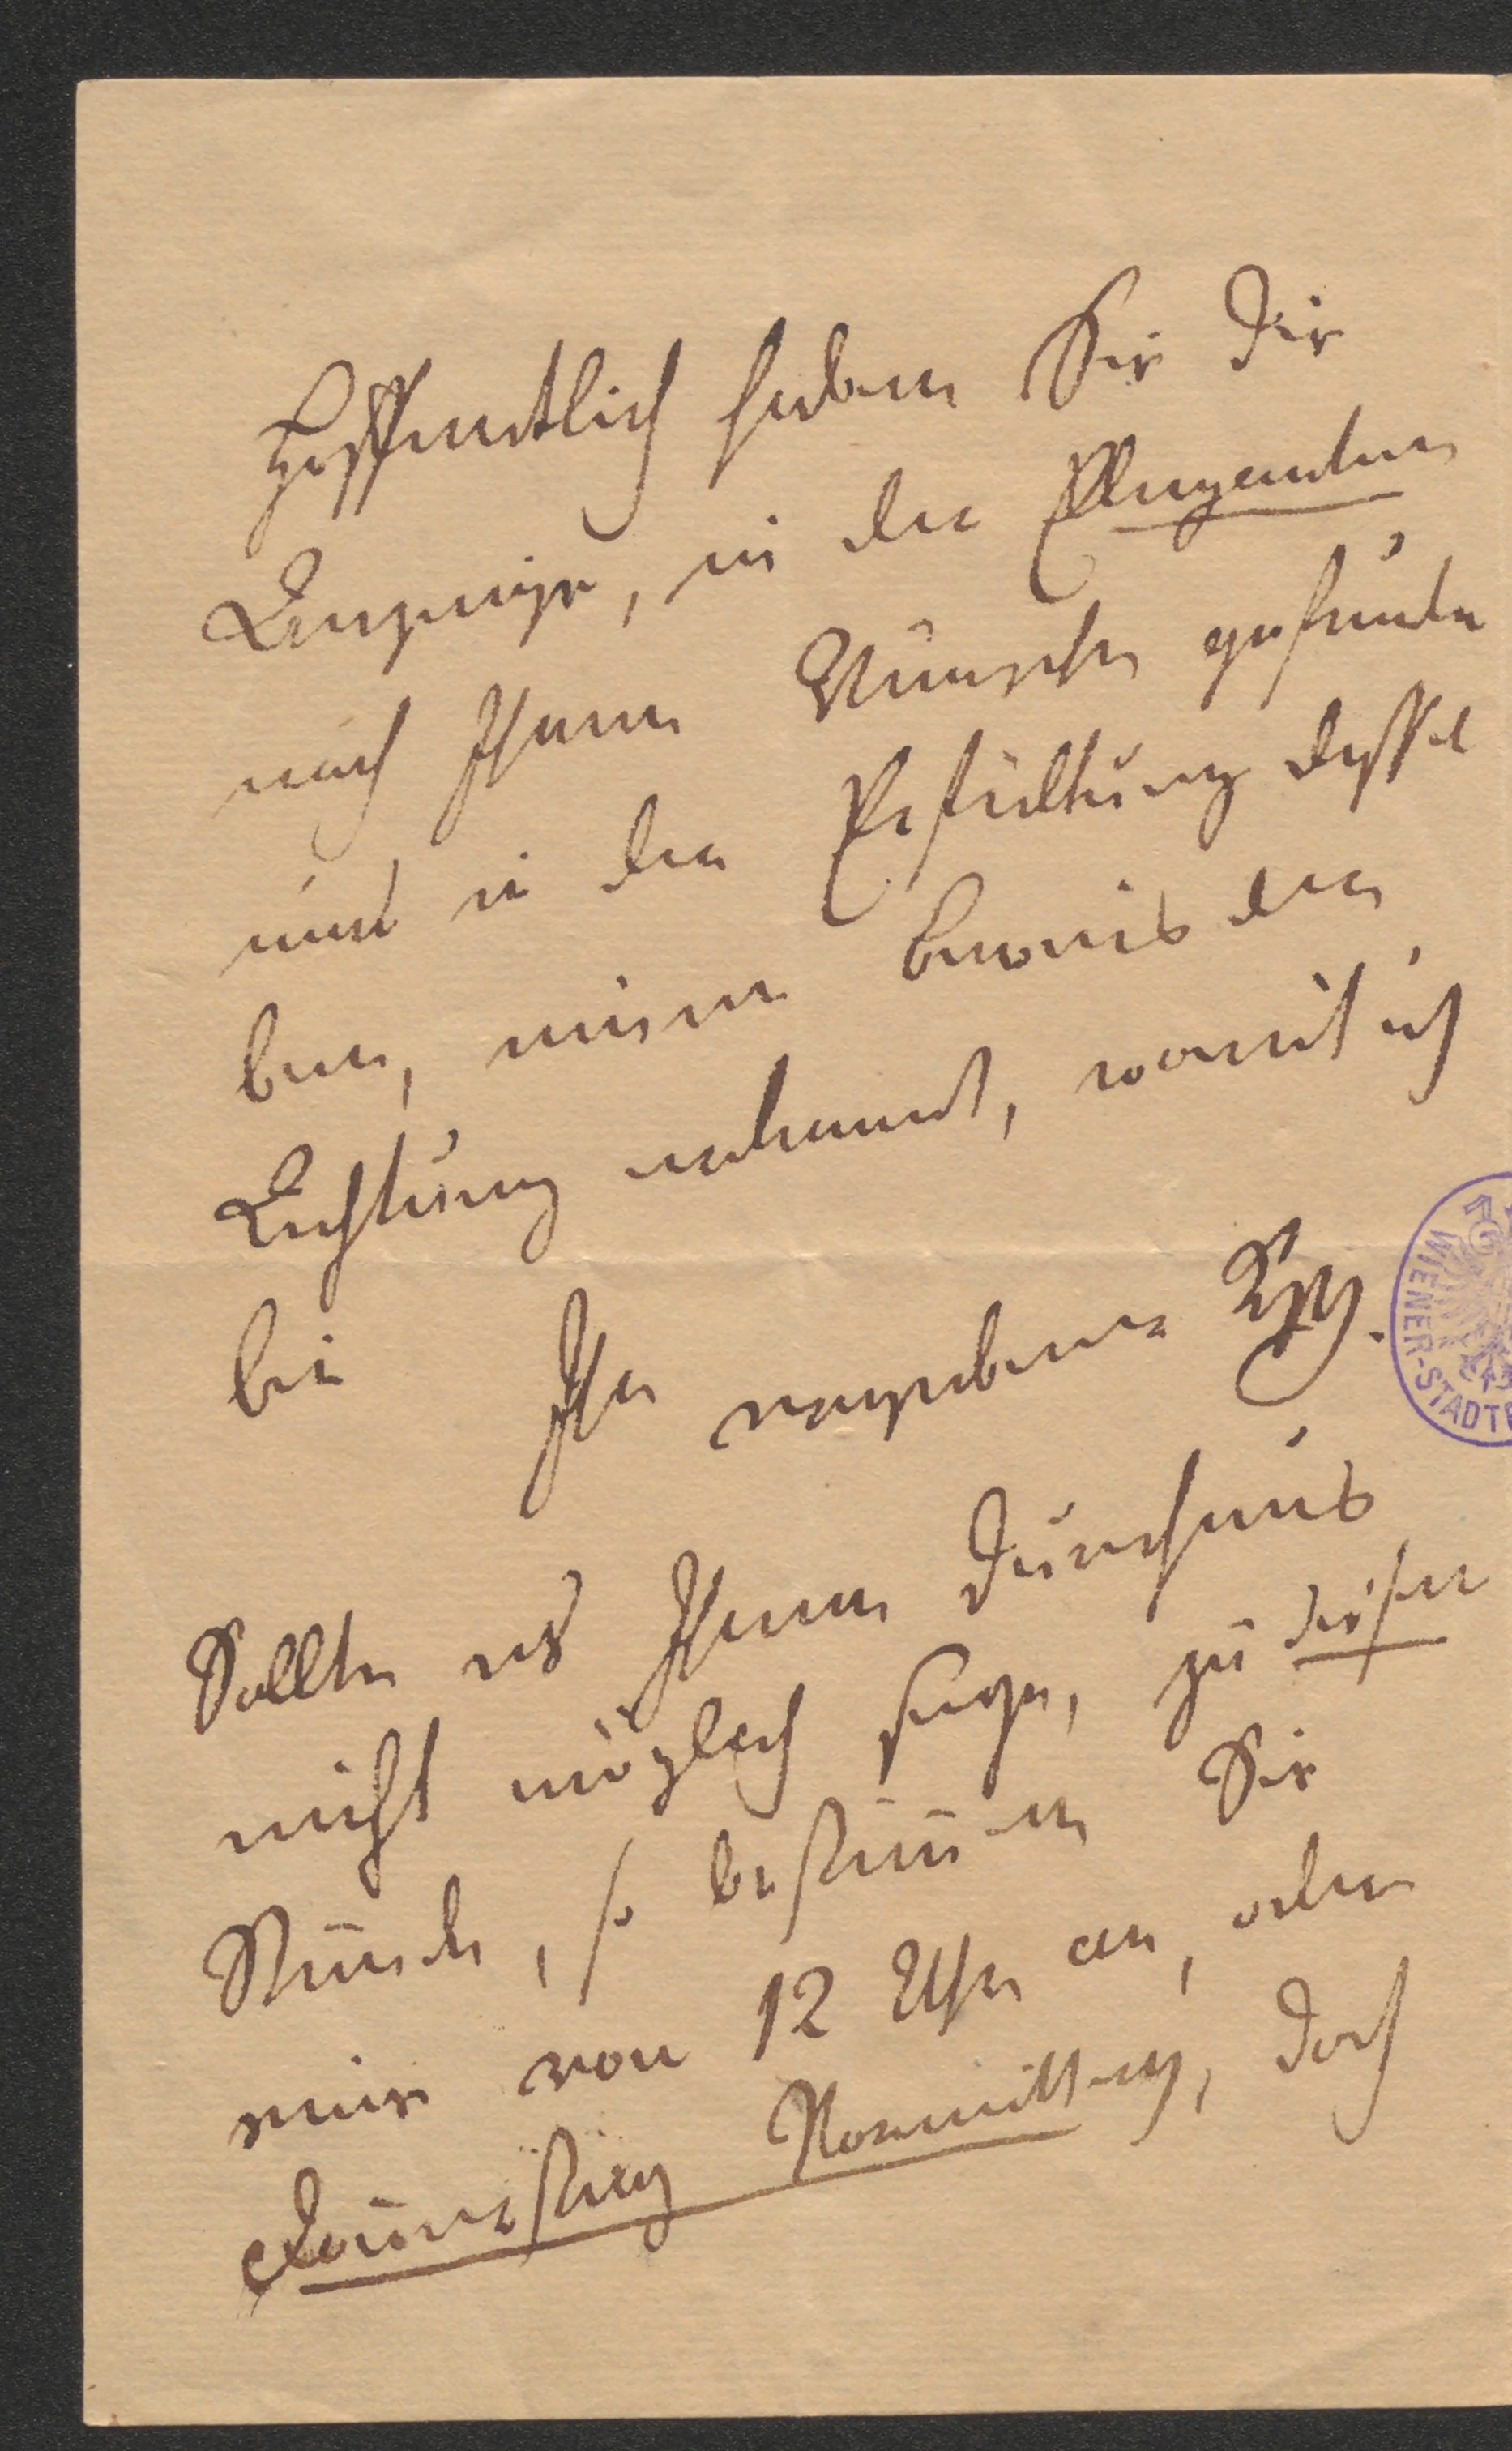 Hoffentlich haben Sie die
Anzeige, in der Eleganten
nach Ihrem Wunsche gefunden
und in der Erfüllung dessel
ben, einen beweis der
Achtung erkannt, womit ich
bin Ihr ergebener
Sollte es Ihnen durchaus
nicht möglich seyn, zu dieser
Stunde, so bestim̄en Sie
eine von 12 Uhr an, oder
Don̄erstag Vormittag, doch
WIENER-STADT